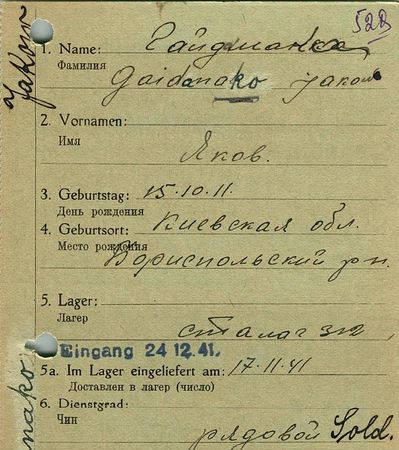 528
1. Name: Гайдманка
Фамилия
Gaidanako Jakow
2. Vornamen:
Имя
Яков.
3. Geburtstag: 15.10.11.
День рождения
4. Geburtsort: Киевская обл.
Место рождения
Бориспольский р-н.
5. Lager:
Лагер
сталаг 312
Eingang 24.12.41.
5a. Im Lager eingeliefert am: 17.11.41
Доставлен в лагер (число)
6. Dienstgrad:
Чин
рядовой Sold.
Jakow
nako